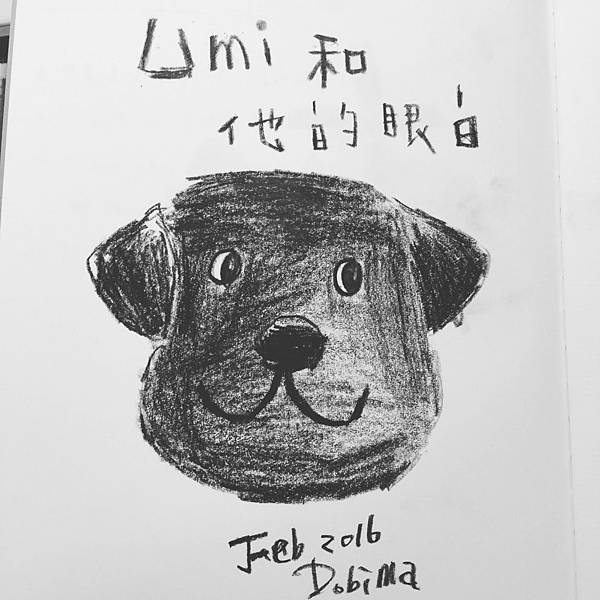 Umi 和
他的眼白
Feb 2016
Dobima